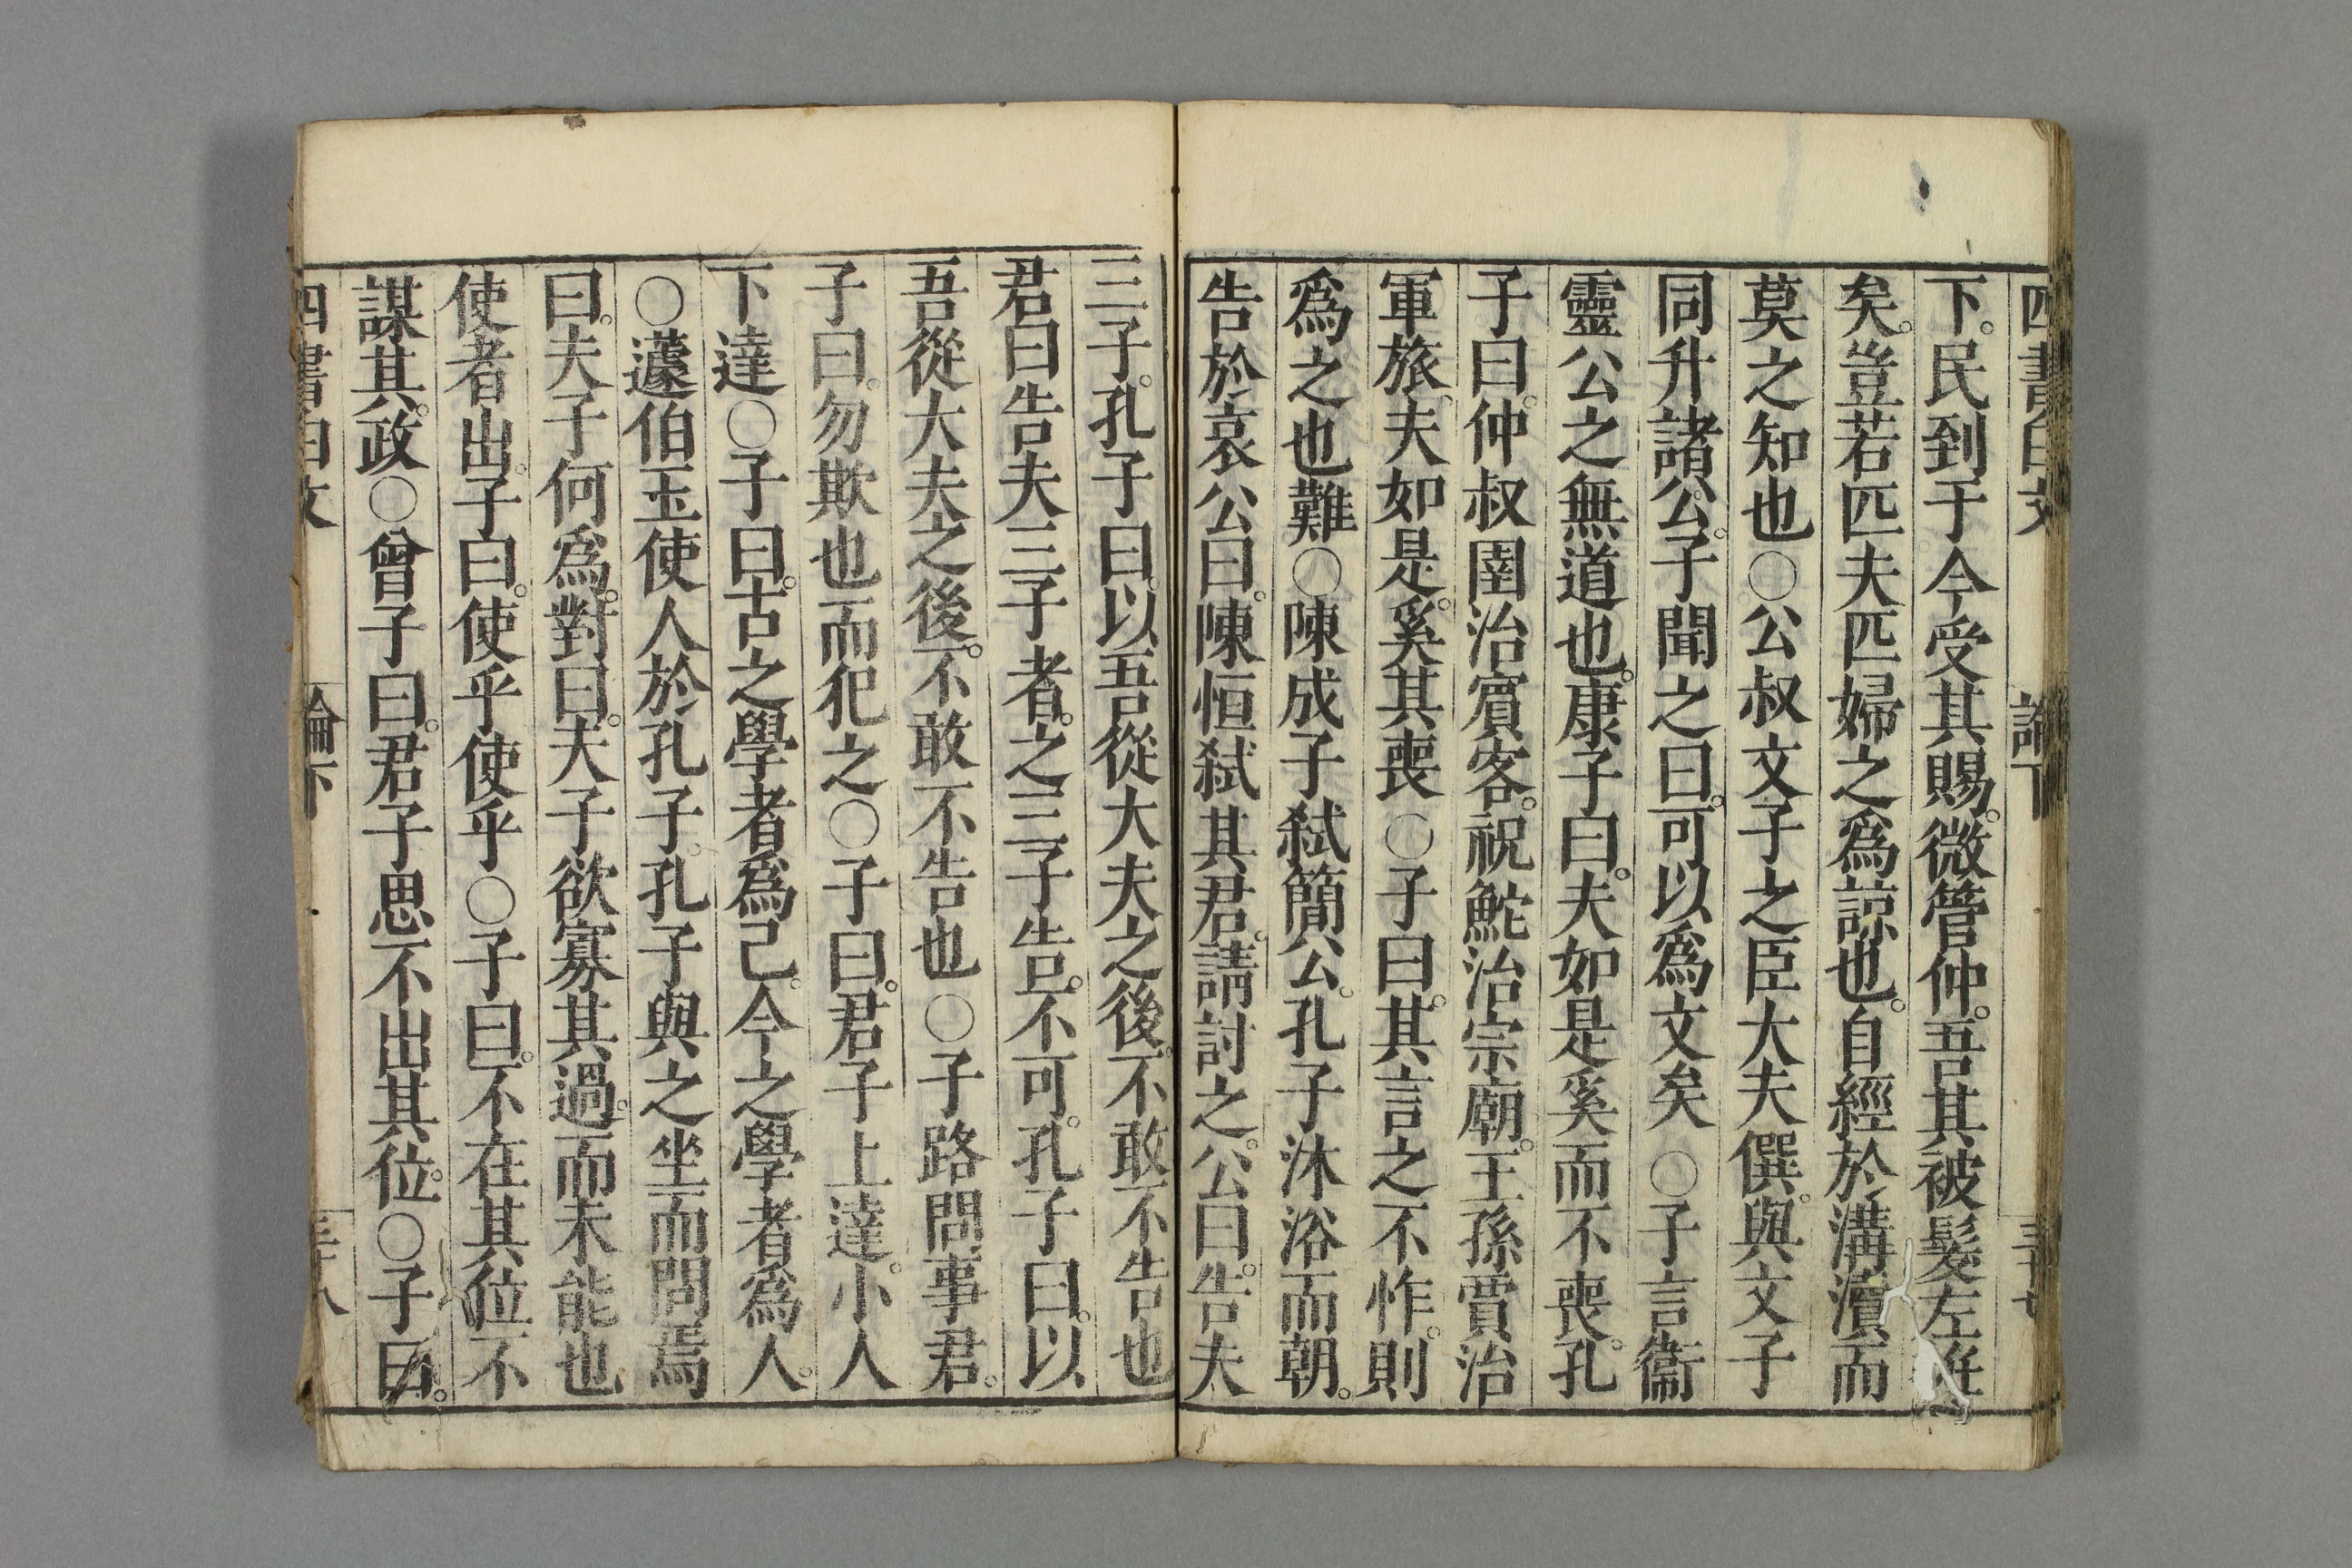 四書白文 論下 三十七
下。民到于今受其賜。微管仲。吾其被髮左衽
矣。豈若匹夫匹婦之爲諒也。自經於溝瀆而
莫之知也○公叔文子之臣大夫僎。與文子
同升諸公。子聞之曰。可以爲文矣○子言衞
靈公之無道也。康子曰。夫如是奚而不喪。孔
子曰。仲叔圉治賓客。祝鮀治宗廟。王孫賈治
軍旅。夫如是。奚其喪○子曰。其言之不怍。則
爲之也難○陳成子弑簡公。孔子沐浴而朝。
告於哀公曰。陳恒弑其君。請討之。公曰。告夫
三子。孔子曰。以吾從大夫之後。不敢不告也
君曰告夫三子者。之三子告。不可。孔子曰。以
吾從大夫之後。不敢不告也○子路問事君。
子曰。勿欺也而犯之○子曰。君子上達。小人
下達○子曰。古之學者爲己。今之學者爲人。
○蘧伯玉使人於孔子。孔子與之坐而問焉
曰。夫子何爲。對曰。夫子欲寡其過。而未能也
使者出。子曰。使乎使乎○子曰。不在其位不
謀其政。○曾子曰。君子思不出其位。○子曰。
四書白文 論下 三十八